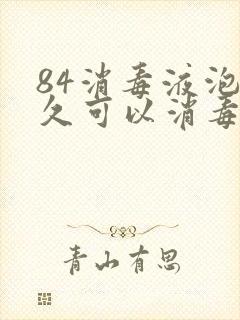 84消毒液泡
久可以消毒
青山有思